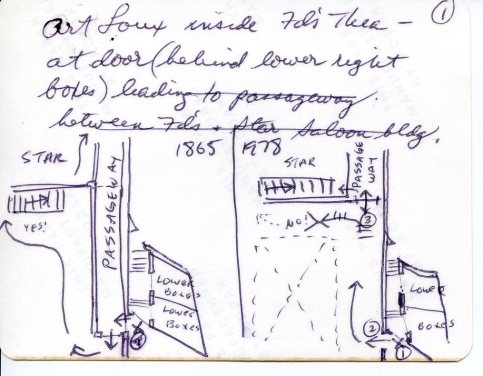 ①
Art Loux inside Fd's Thea —
at door (behind lower right
boxes) leading to passageway
between Fd's + Star Saloon bldg.
1865 1978
STAR
STAR
PASSAGEWAY
PASSAGE
WAY
YES!
NO!
③
LOWER
BOXES
LOWER
BOXES
LOWER
BOXES
②
①